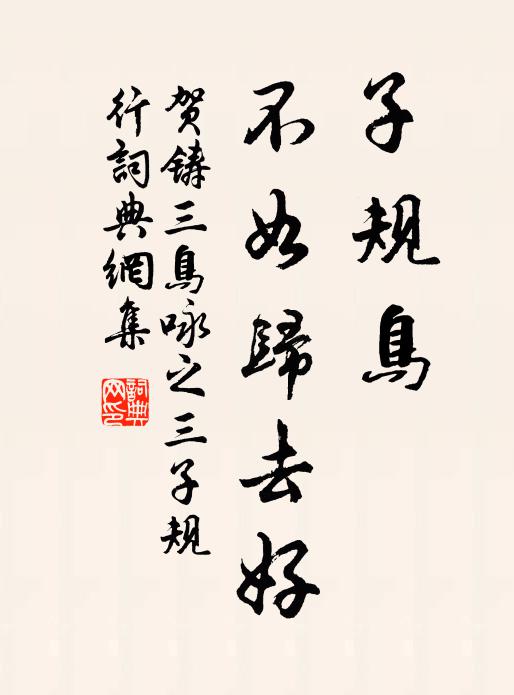 子規鳥
不如歸去好
贺鑄三鳥咏之三子规
行詞典網集
詞典网印